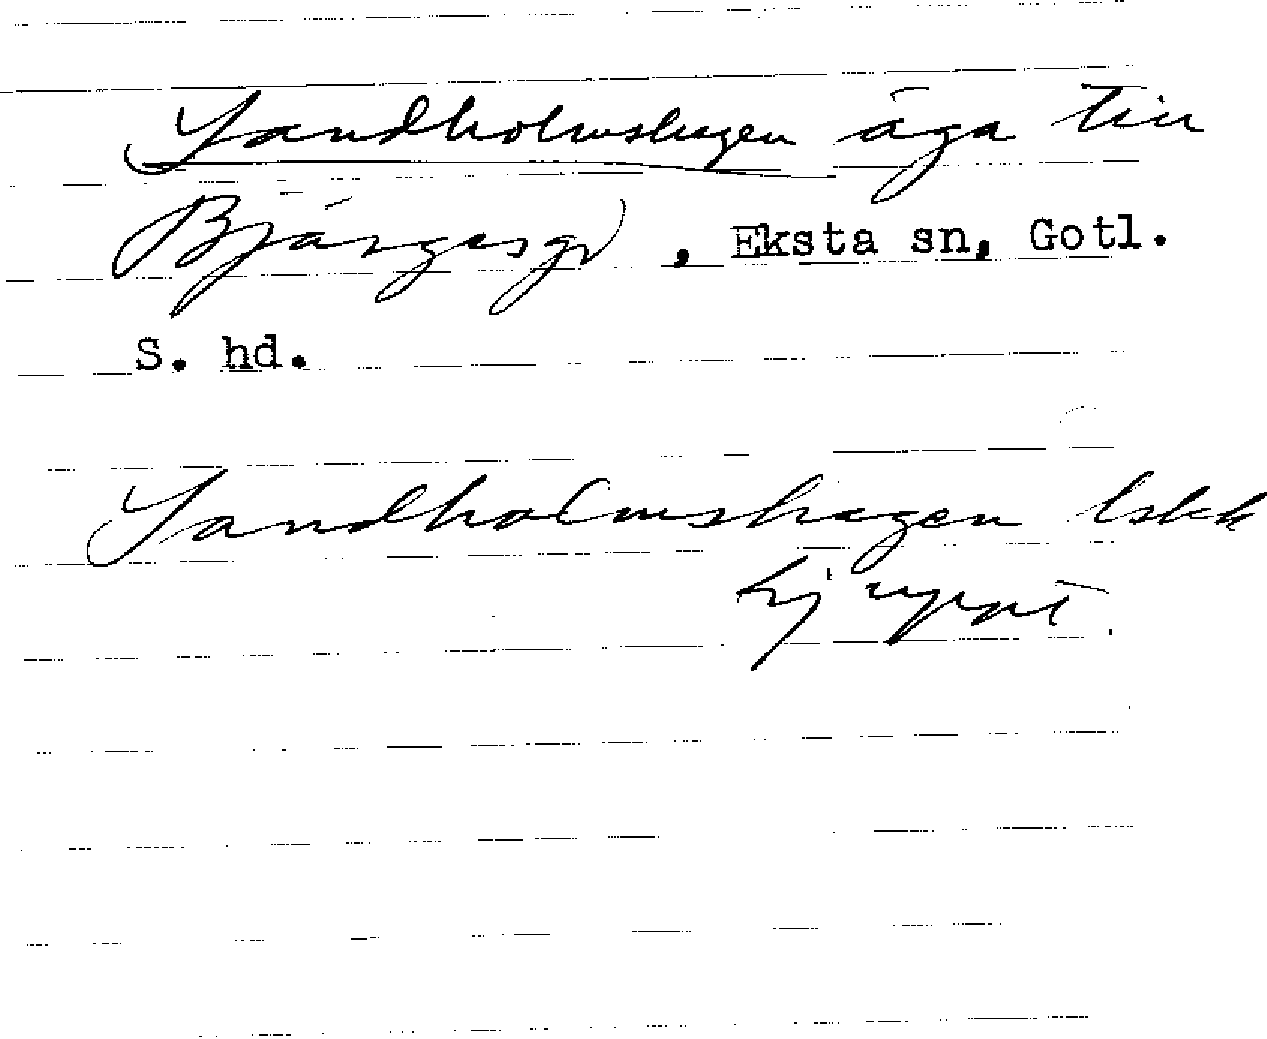 Sandholmshagen äga till
Bjärgesgd, Eksta sn, Gotl.
S. hd.
Sandholmshagen lskk
Ej uppt.